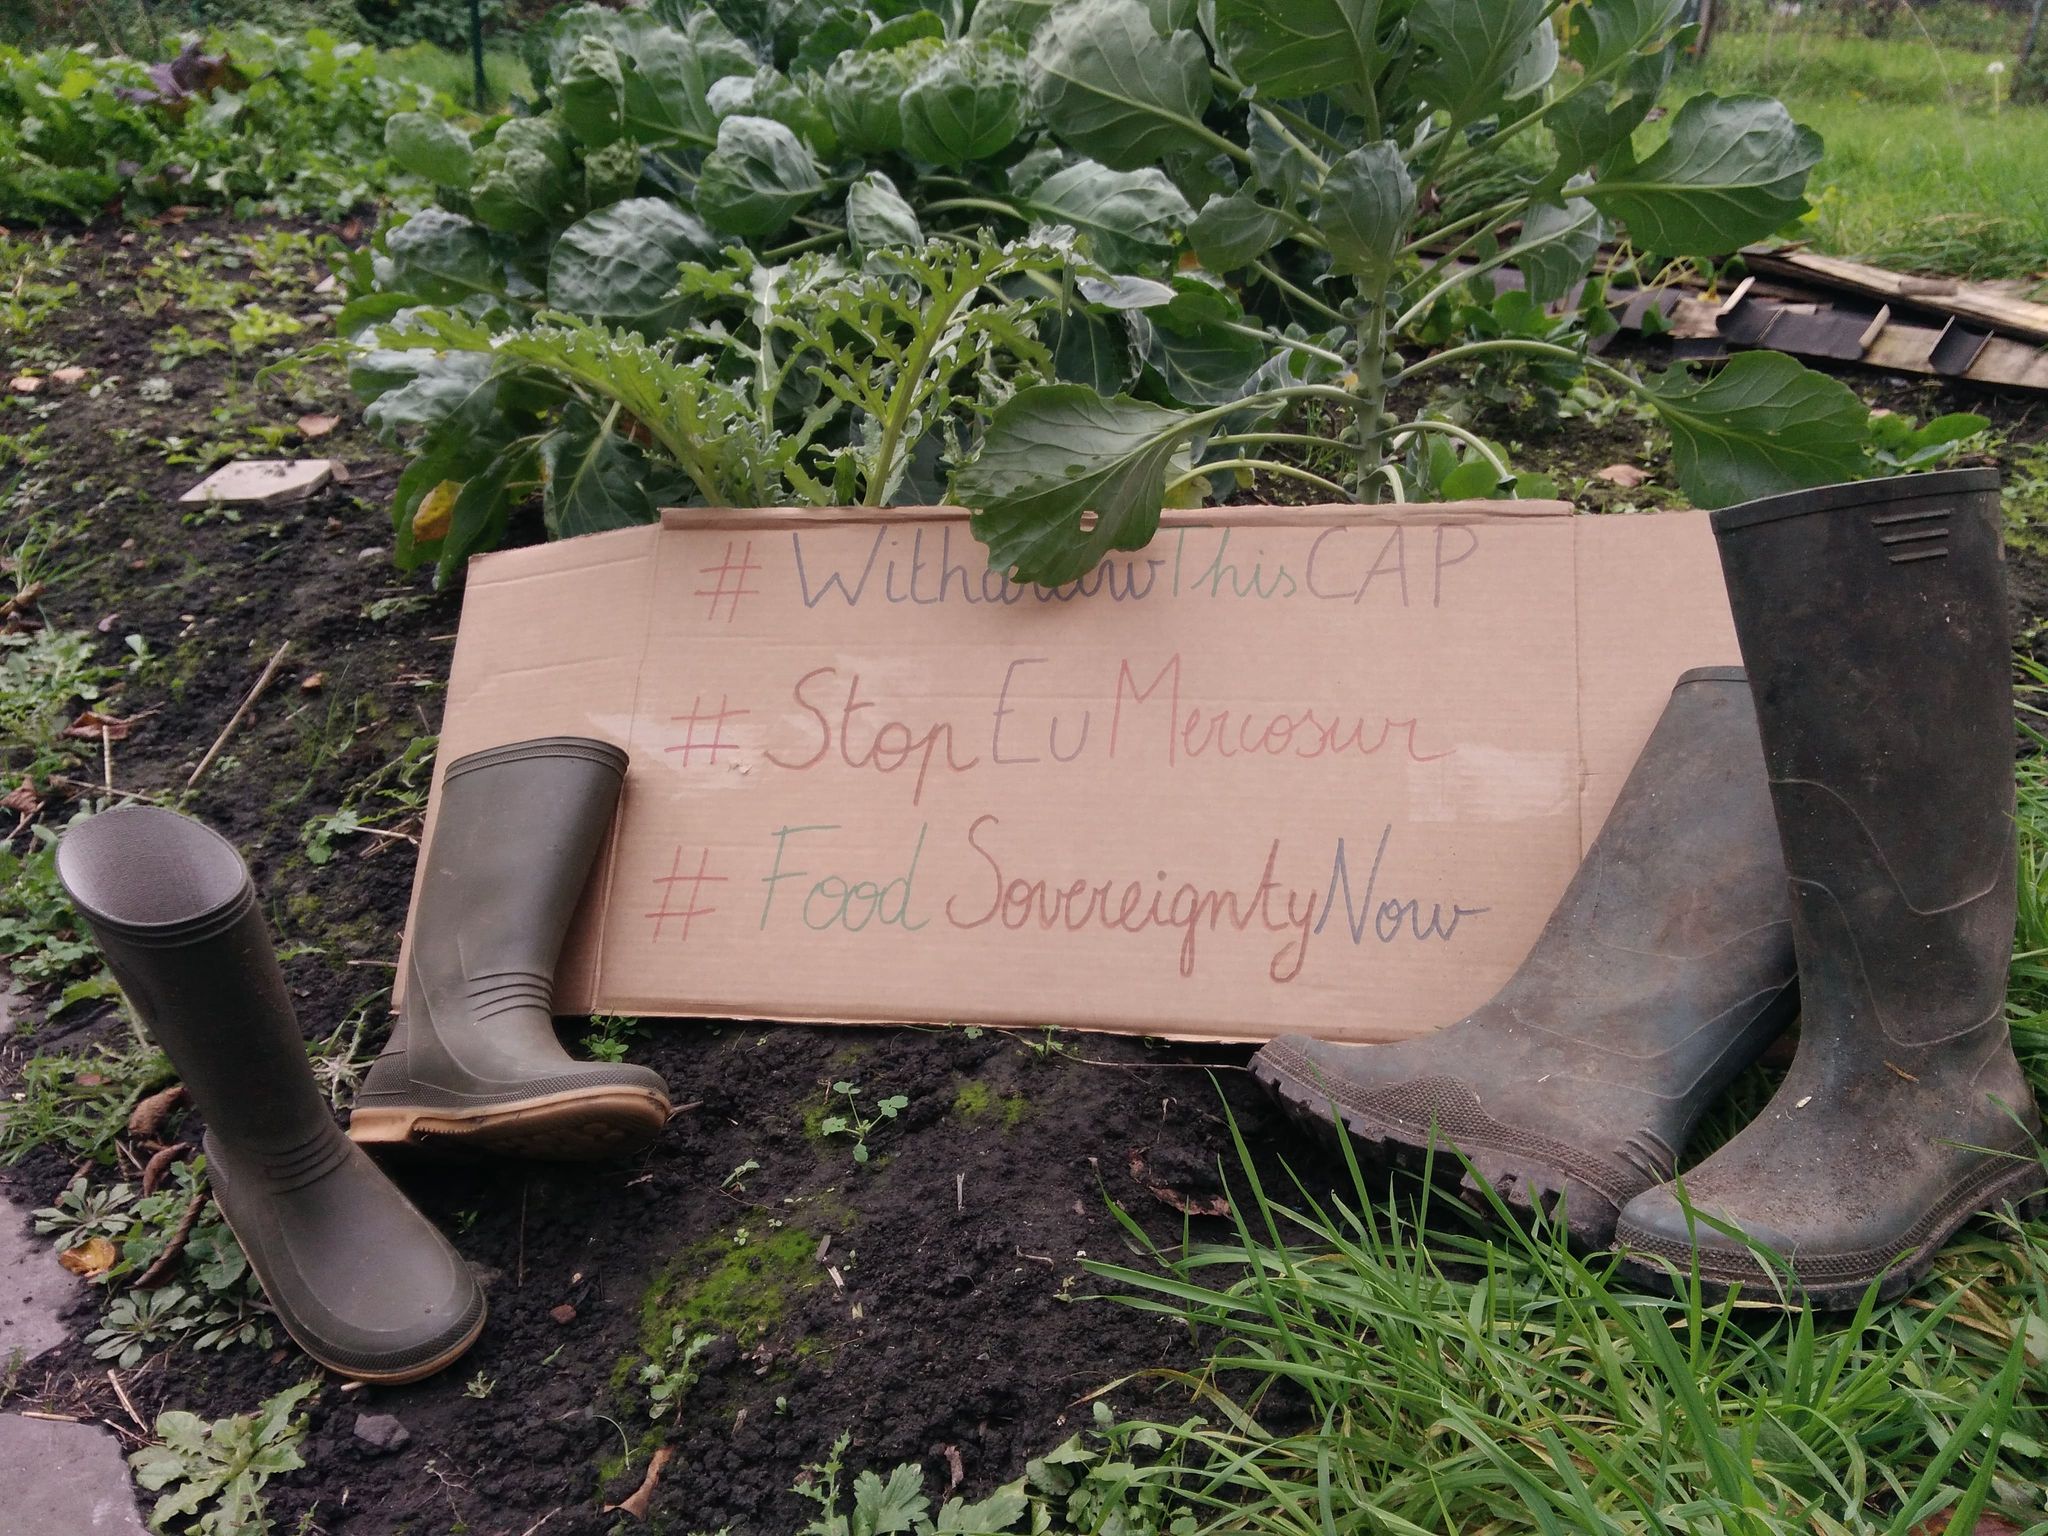 # WithdrawThisCAP
# StopEuMercosur
# FoodSovereigntyNow